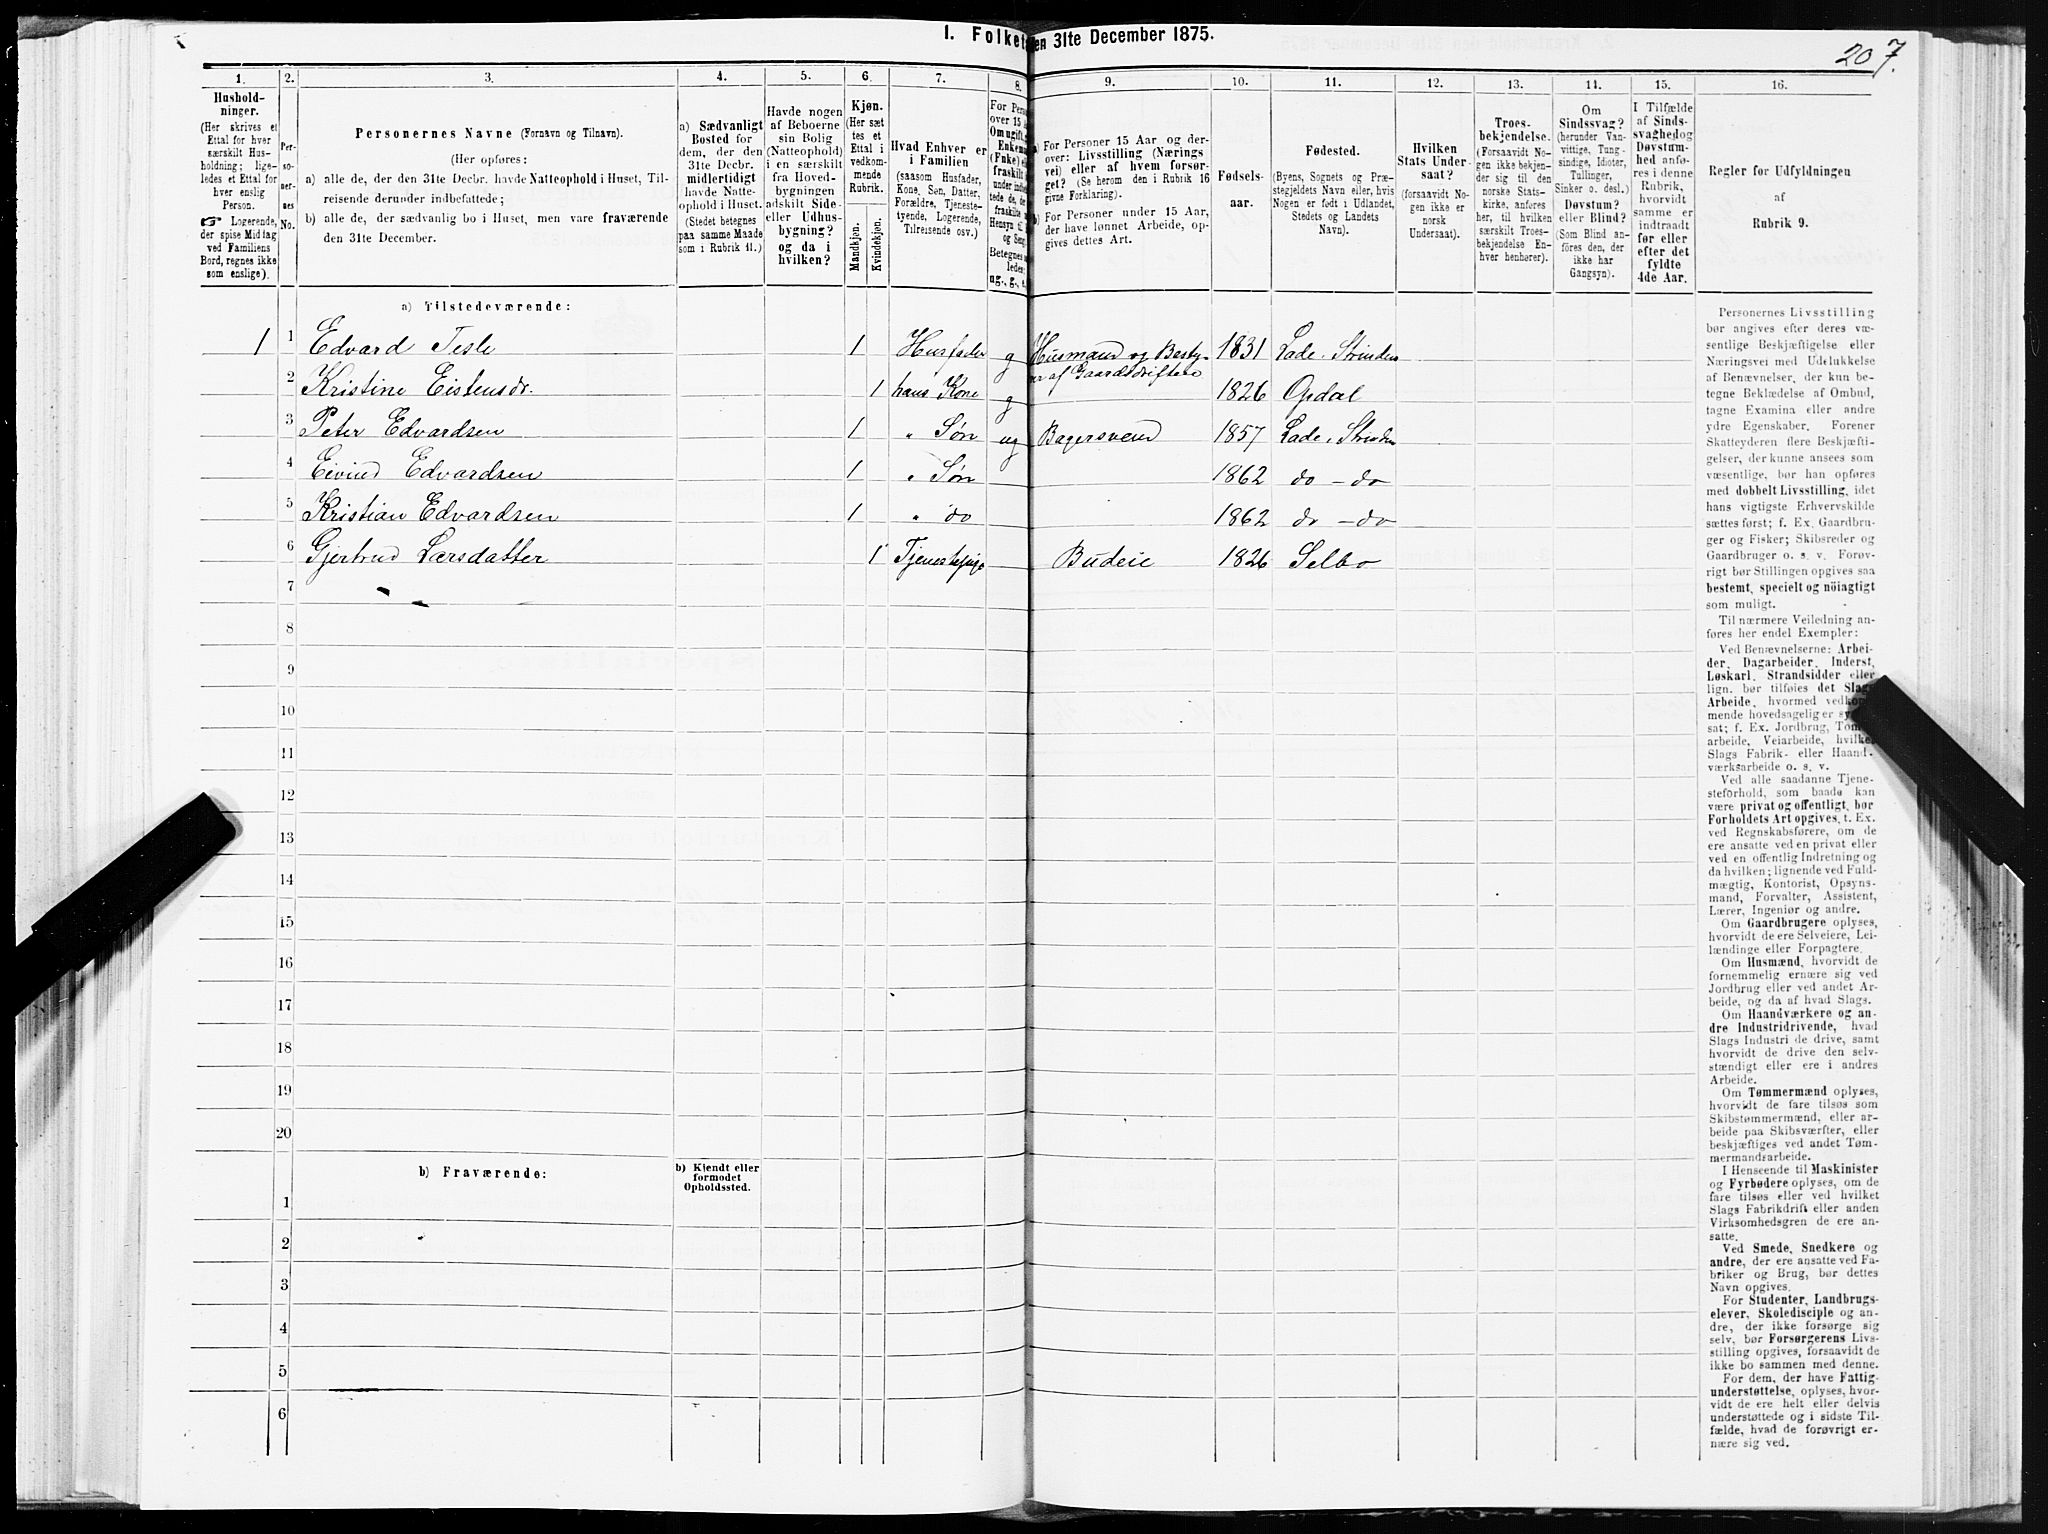 I. Folket
en 31te December 1875.
207.
1.
2.
3.
4.
5.
6.
7.
8.
9.
10.
11.
12.
13.
14.
15.
16.
Hushold-
ninger.
(Her skrives et
Ettal for hver
særskilt Hus-
holdning; lige-
ledes et Ettal for
hver enslig
Person.
☞ Logerende,
der spise Middag
ved Familiens
Bord, regnes ikke
som enslige).
Per-
so-
ner-
nes
No.
Personernes Navne (Fornavn og Tilnavn).
(Her opføres:
a) alle de, der den 31te Decbr. havde Natteophold i Huset, Til-
reisende derunder indbefattede;
b) alle de, der sædvanlig bo i Huset, men vare fraværende
den 31te December.
a) Sædvanligt
Bosted for
dem, der den
31te Decbr.
midlertidigt
havde Natte-
ophold i Huset.
(Stedet betegnes
paa samme Maade
som i Rubrik 11.)
Havde nogen
af Beboerne
sin Bolig
(Natteophold)
i en særskilt
fra Hoved-
bygningen
adskilt Side-
eller Udhus-
bygning?
og da i
hvilken?
Kjøn.
(Her sæt
tes et
Ettal i
vedkom-
mende
Rubrik.
Mandkjøn.
Kvindekjøn.
Hvad Enhver er
i Familien
(saasom Husfader,
Kone, Søn, Datter,
Forældre, Tjeneste-
tyende, Logerende,
Tilreisende osv.)
For Pers
over 15
Om ugift,
Enkem
(Enke)
fraskilt
under indbe
tede de, de
fraskilte
Hensyn til
og Seng.
Betegnes
ledes:
ug., g., e.
a) For Personer 15 Aar og der-
over: Livsstilling (Nærings
vei) eller af hvem forsør-
get? (Se herom den i Rubrik 16
givne Forklaring).
b) For Personer under 15 Aar,
der have lønnet Arbeide, op-
gives dettes Art.
Fødsels-
aar.
Fødested.
(Byens, Sognets og Præ-
stegjeldets Navn eller, hvis
Nogen er født i Udlandet,
Stedets og Landets
Navn).
Hvilken
Stats Under-
saat?
(forsaavidt No-
gen ikke er
norsk
Undersaat).
Troes-
bekjendelse.
(Forsaavidt No-
gen ikke bekjen-
der sig til den
norske Stats-
kirke, anføres
her, til hvilken
særskilt Troes-
bekjendelse En-
hver henhører).
Om
Sindssvag?
(herunder Van-
vittige, Tung-
sindige, Idioter,
Tullinger,
Sinker o. desl.)
Døvstum?
eller Blind?
(Som Blind an-
føres den, der
ikke har
Gangsyn).
I Tilfælde
af Sinds-
svaghed og
Døvstum-
hed anfø-
res i denne
Rubrik,
hvorvidt
samme er
indtraadt
før eller
efter det
fyldte
4de Aar.
Regler for Udfyldningen
af
Rubrik 9.
a) Tilstedeværende:
1 1 Edvard Tesle 1 Husfader g Husmand og Besty-
rer af Gaardsdriften 1831 Lade, Strinden
2 Kristine Eistensdr. 1 hans Kone g 1826 Opdal
3 Peter Edvardsen 1 " Søn ug Bagersvend 1857 Lade, Strinden
4 Eivind Edvardsen 1 " Søn 1862 do - do
5 Kristian Edvardsen 1 " do 1862 do - do
6 Gjertrud Larsdatter 1 Tjenestepige Budeie 1826 Selbo
7
8
9
10
11
12
13
14
15
16
17
18
19
20
b) Fraværende:
b) Kjendt eller
formodet
Opholdssted.
1
2
3
4
5
6
Personernes Livsstilling
bør angives efter deres væ-
sentlige Beskjæftigelse eller
Næringsvei med Udelukkelse
af Benævnelser, der kun be-
tegne Beklædelse af Ombud,
tagne Examina eller andre
ydre Egenskaber. Forener
Skatteyderen flere Beskjæfti-
gelser, der kunne ansees som
væsentlige, bør han opføres
med dobbelt Livsstilling, idet
hans vigtigste Erhvervskilde
sættes først; f. Ex. Gaardbru-
ger og Fisker; Skibsreder og
Gaardbruger o. s. v. Forøv-
rigt bør Stillingen opgives saa
bestemt, specielt og nöiagtigt
som muligt.
Til nærmere Veiledning an-
føres her endel Exempler:
Ved Benævnelserne: Arbei-
der, Dagarbeider, Inderst,
Løskarl, Strandsidder eller
lign. bør tilføies det Slags
Arbeide, hvormed vedkom-
mende hovedsagelig er sys-
sat; f. Ex. Jordbrug, Tøm-
arbeide, Veiarbeide, hvilket
Slags Fabrik- eller Haand-
værksarbeide o. s. v.
Ved alle saadanne Tjene-
steforhold, som baade kan
være privat og offentligt, bør
Forholdets Art opgives, t. Ex.
ved Regnskabsførere, om de
ere ansatte ved en privat eller
ved en offentlig Indretning og
da hvilken; lignende ved Fuld-
mægtig, Kontorist, Opsyns-
mand, Forvalter, Assistent,
Lærer, Ingeniør og andre.
Om Gaardbrugere oplyses,
hvorvidt de ere Selveiere, Lei-
lændinge eller Forpagtere.
Om Husmænd, hvorvidt de
fornemmelig ernære sig ved
Jordbrug eller ved andet Ar-
beide, og da af hvad Slags.
Om Haandværkere og an-
dre Industridrivende, hvad
Slags Industri de drive, samt
hvorvidt de drive den selv-
stændigt eller ere i andres
Arbeide.
Om Tømmermænd oplyses,
hvorvidt de fare tilsøs som
Skibstømmermænd, eller ar-
beide paa Skibsværfter, eller
beskjæftiges ved andet Tøm-
mermandsarbeide.
I Henseende til Maskinister
og Fyrbødere oplyses, om de
fare tilsøs eller ved hvilket
Slags Fabrikdrift eller anden
Virksomhedsgren de ere an-
satte.
Ved Smede, Snedkere og
andre, der ere ansatte ved Fa-
briker og Brug, bør dettes
Navn opgives.
For Studenter, Landbrugs-
elever, Skoledisciple og an-
dre, der ikke forsørge sig
selv, bør Forsørgerens Livs-
stilling opgives, forsaavidt de
ikke bo sammen med denne.
For dem, der have Fattig-
understøttelse, oplyses, hvor-
vidt de ere helt eller delvis
understøttede og i sidste Til-
fælde, hvad de forøvrigt er-
nære sig ved.